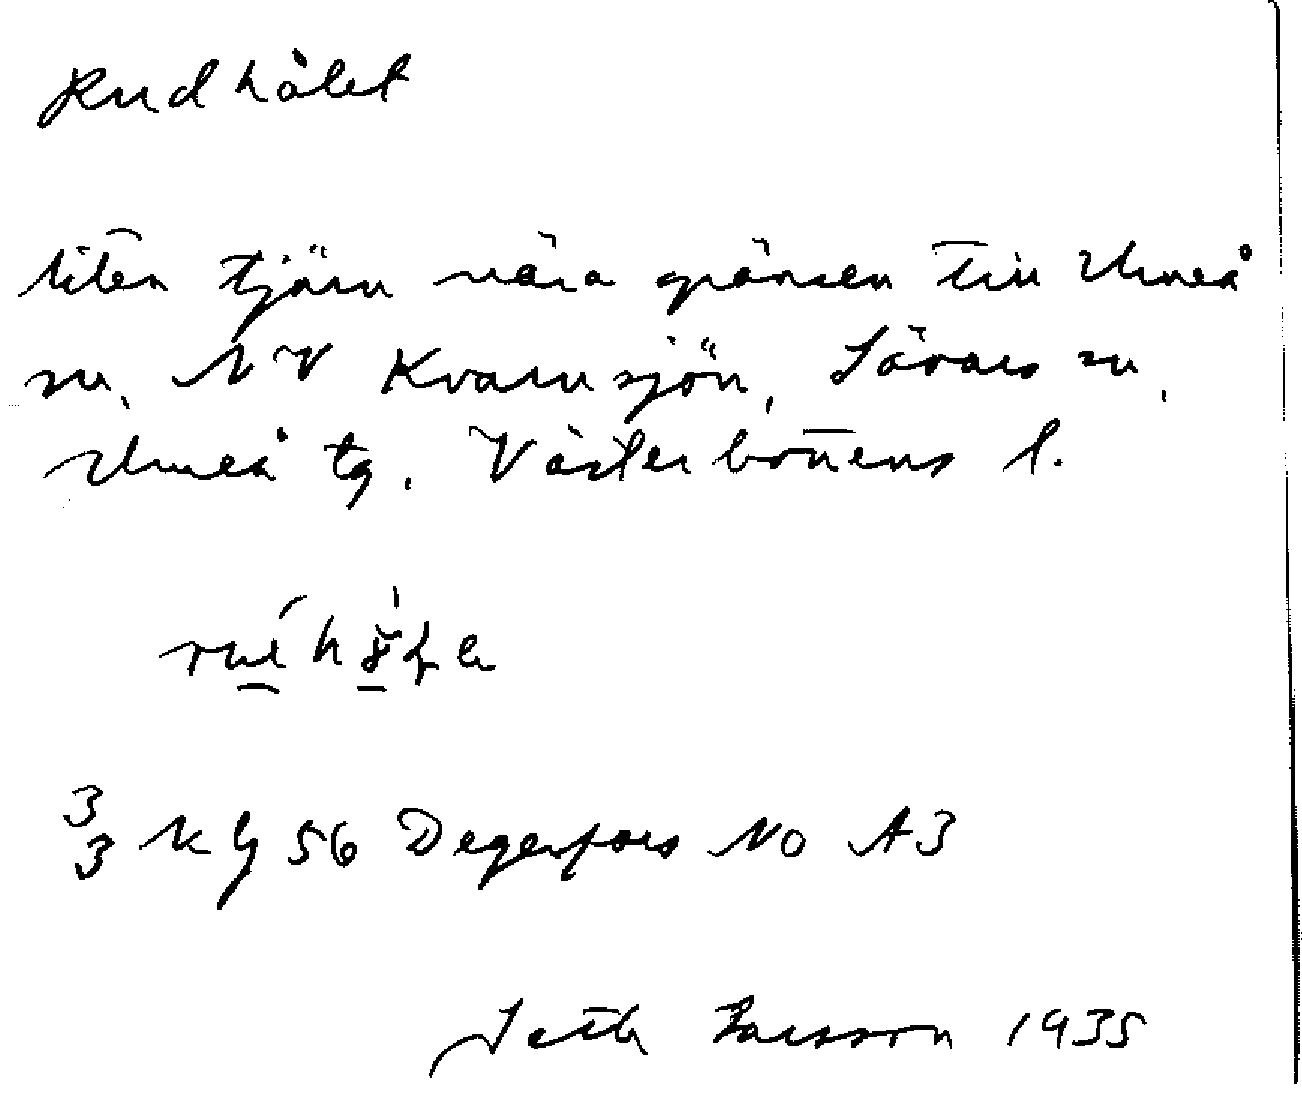 Rudhålet
liten tjärn nära gränsen till Umeå
sn, NV Kvarnsjön, Sävars sn,
Umeå tg, Västerbottens l.
3
3 kg 56 Degerfors NO A3
Seth Larsson 1935